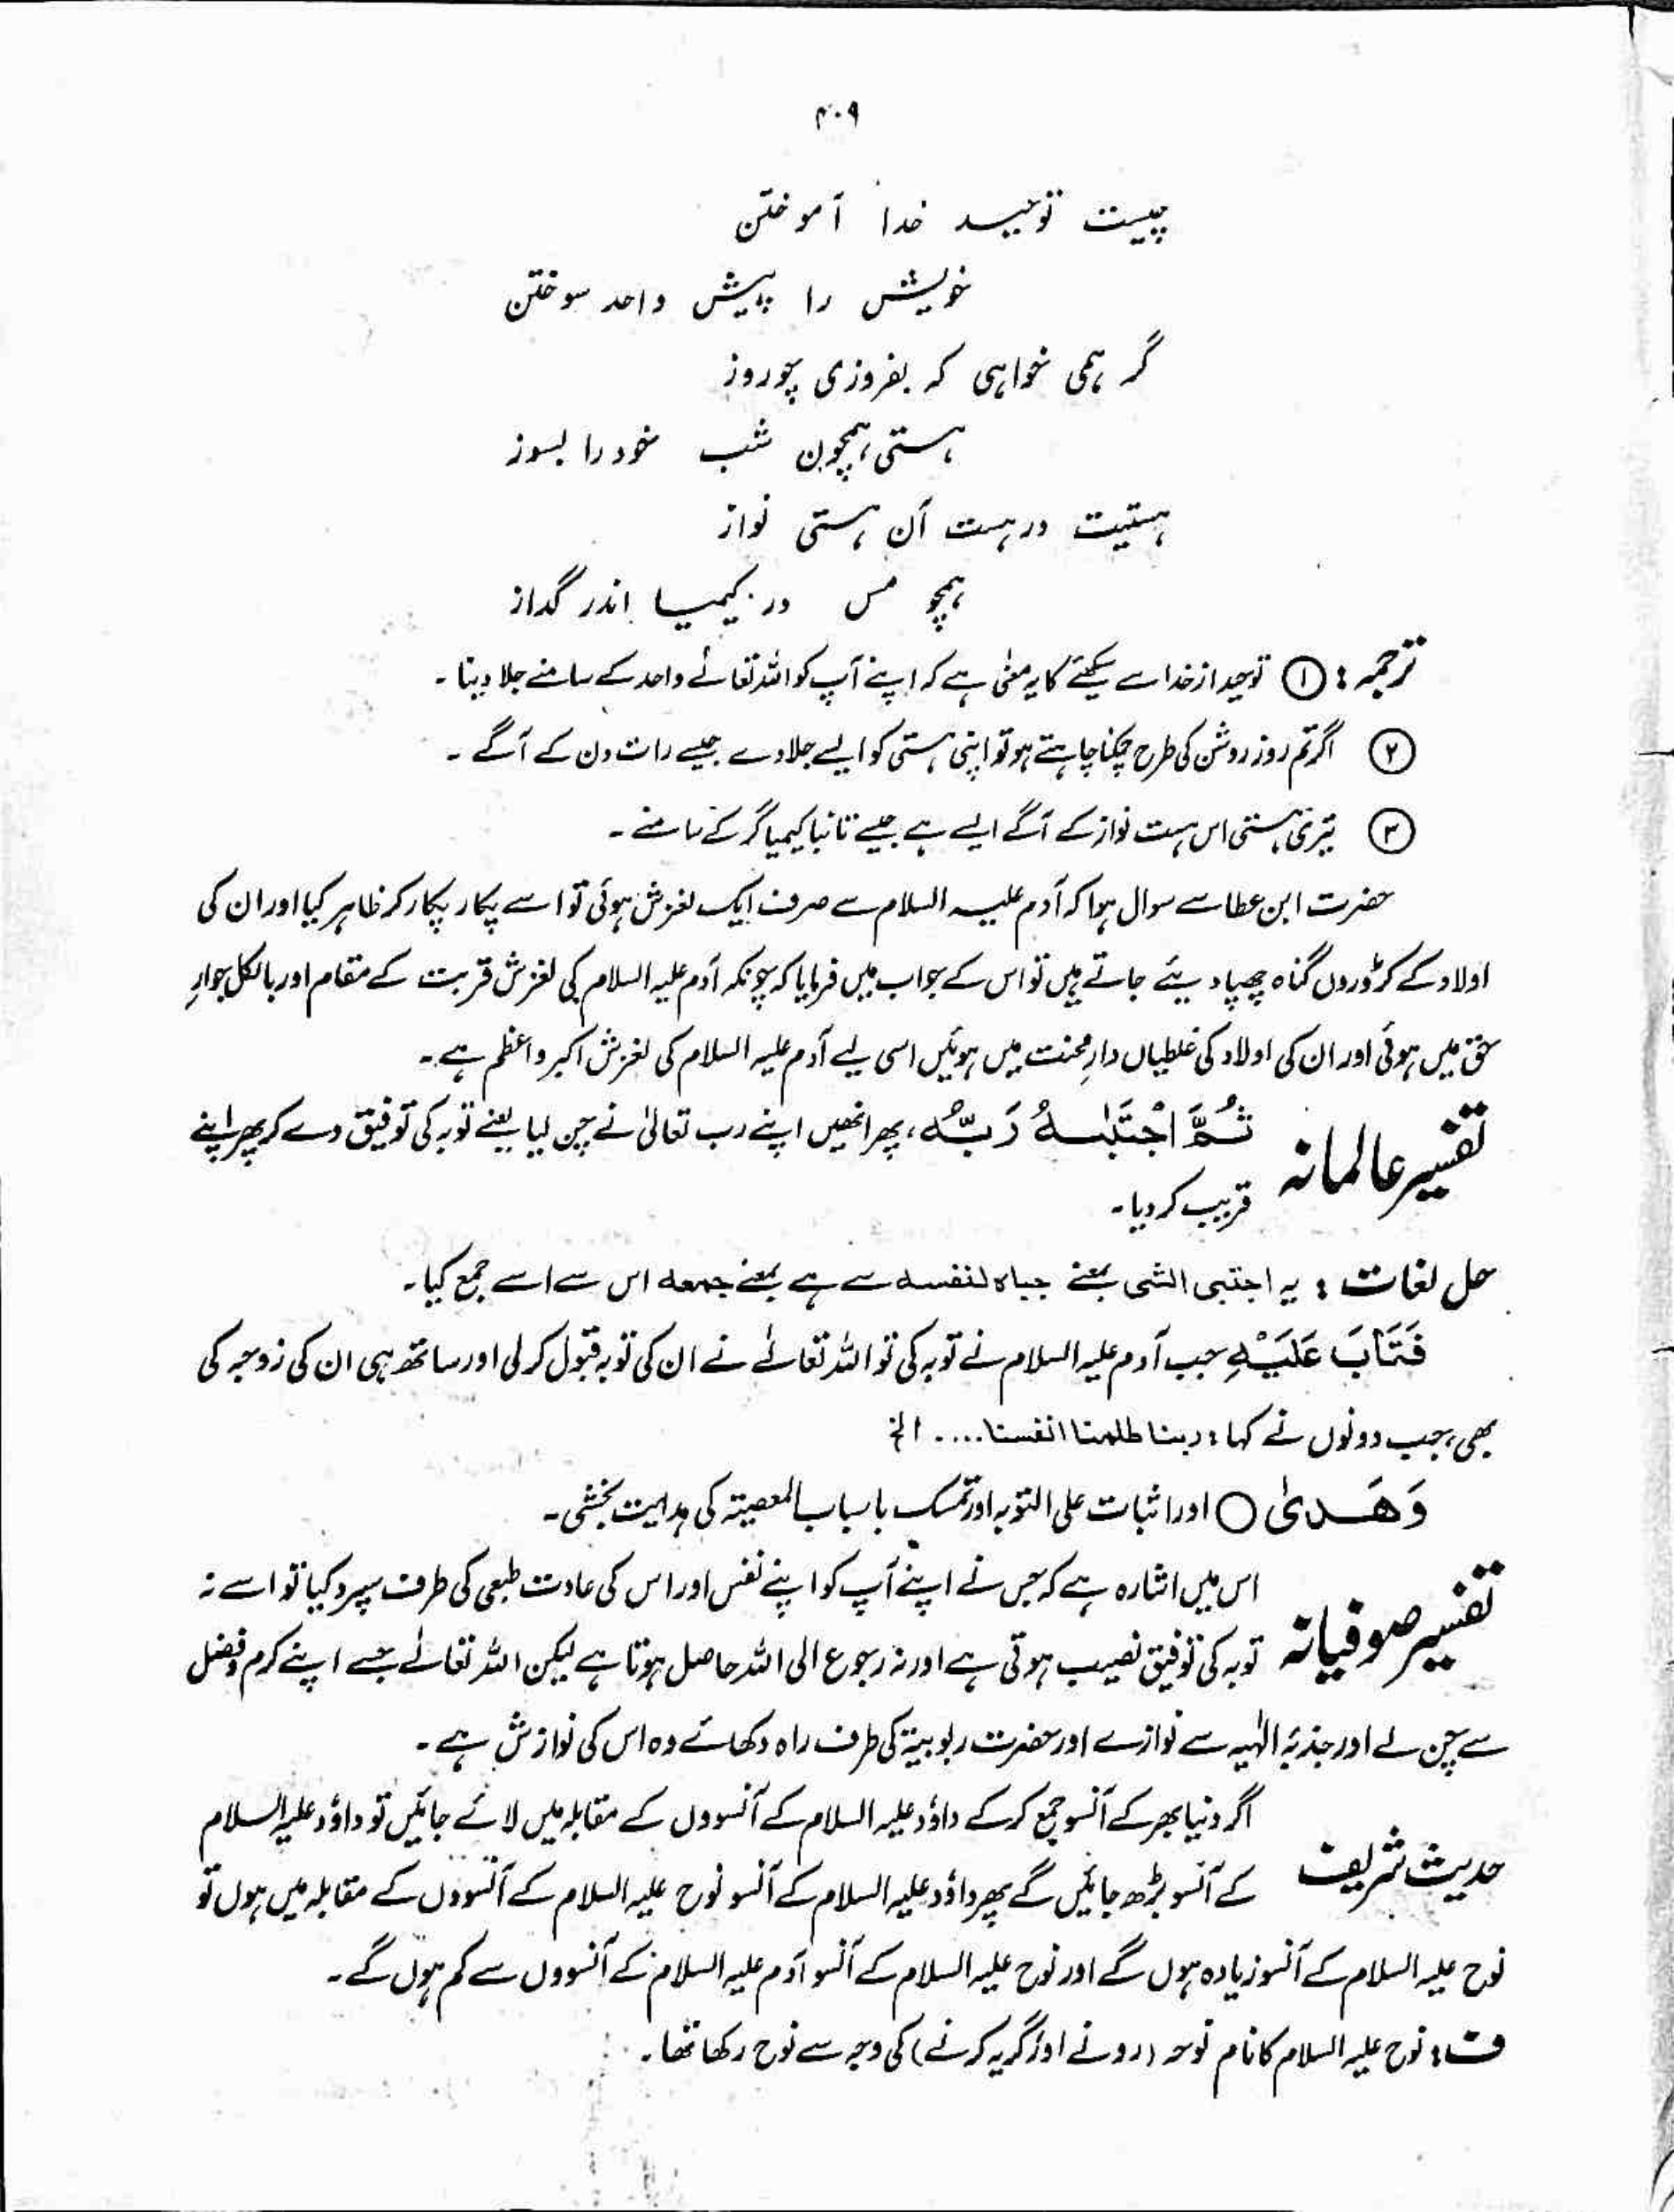 ۴۰۹
چیست توحید خدا آموختن
خویش را پیش واحد سوختن
گر ہمی خواہی کہ بفروزی چو روز
ہستی ہمچون شب خود را بسوز
ہستیت در ہست آن ہستی نواز
ہمچو مس در کیمیا اندر گداز
ترجمہ : ① توحید از خدا سے سیکھنے کا یہ معنٰی ہے کہ اپنے آپ کو اللہ تعالےٰ واحد کے سامنے جلا دینا ۔
② اگر تم روز روشن کی طرح چمکنا چاہتے ہو تو اپنی ہستی کو ایسے جلا دے جیسے رات دن کے آگے ۔
③ تیری ہستی اس ہست نواز کے آگے ایسے ہے جیسے تانبا کیمیا گر کے سامنے ۔
حضرت ابن عطا سے سوال ہوا کہ آدم علیہ السلام سے صرف ایک لغزش ہوئی تو اسے پکار پکار کر ظاہر کیا اور ان کی
اولاد کے کروڑوں گناہ چھپا دیئے جاتے ہیں تو اس کے جواب میں فرمایا کہ چونکہ آدم علیہ السلام کی لغزش قربت کے مقام اور بالکل جوارِ
حق میں ہوئی اور ان کی اولاد کی غلطیاں دارِ محنت میں ہوئیں اسی لیے آدم علیہ السلام کی لغزش اکبر و اعظم ہے ۔
تفسیر عالمانہ ثُمَّ اجْتَبٰىهُ رَبُّهٗ ، پھر انھیں اپنے رب تعالیٰ نے چن لیا یعنے توبہ کی توفیق دے کر پھر اپنے
قریب کر دیا ۔
حل لغات : یہ اجتبی الشی بمعنے جباہ لنفسہ سے ہے بمعنے جمعہ اس سے اسے جمع کیا ۔
فَتَابَ عَلَیْهِ جب آدم علیہ السلام نے توبہ کی تو اللہ تعالےٰ نے ان کی توبہ قبول کر لی اور ساتھ ہی ان کی زوجہ کی
بھی ، جب دونوں نے کہا : ربنا ظلمنا انفسنا .... الخ
وَهَدىٰ ○ اور اثبات علی التوبہ اور تمسک باسباب المعصیۃ کی ہدایت بخشی ۔
تفسیر صوفیانہ اس میں اشارہ ہے کہ جس نے اپنے آپ کو اپنے نفس اور اس کی عادت طبعی کی طرف سپرد کیا تو اسے نہ
توبہ کی توفیق نصیب ہوتی ہے اور نہ رجوع الی اللہ حاصل ہوتا ہے لیکن اللہ تعالےٰ جسے اپنے کرم و فضل
سے چن لے اور جذبۂ الٰہیہ سے نوازے اور حضرت ربوبیۃ کی طرف راہ دکھائے وہ اس کی نوازش ہے ۔
حدیث شریف اگر دنیا بھر کے آنسو جمع کر کے داؤد علیہ السلام کے آنسوؤں کے مقابلہ میں لائے جائیں تو داؤد علیہ السلام
کے آنسو بڑھ جائیں گے پھر داؤد علیہ السلام کے آنسو نوح علیہ السلام کے آنسوؤں کے مقابلہ میں ہوں تو
نوح علیہ السلام کے آنسو زیادہ ہوں گے اور نوح علیہ السلام کے آنسو آدم علیہ السلام کے آنسووں سے کم ہوں گے ۔
ف : نوح علیہ السلام کا نام نوحہ (رونے اور گریہ کرنے) کی وجہ سے نوح رکھا تھا ۔